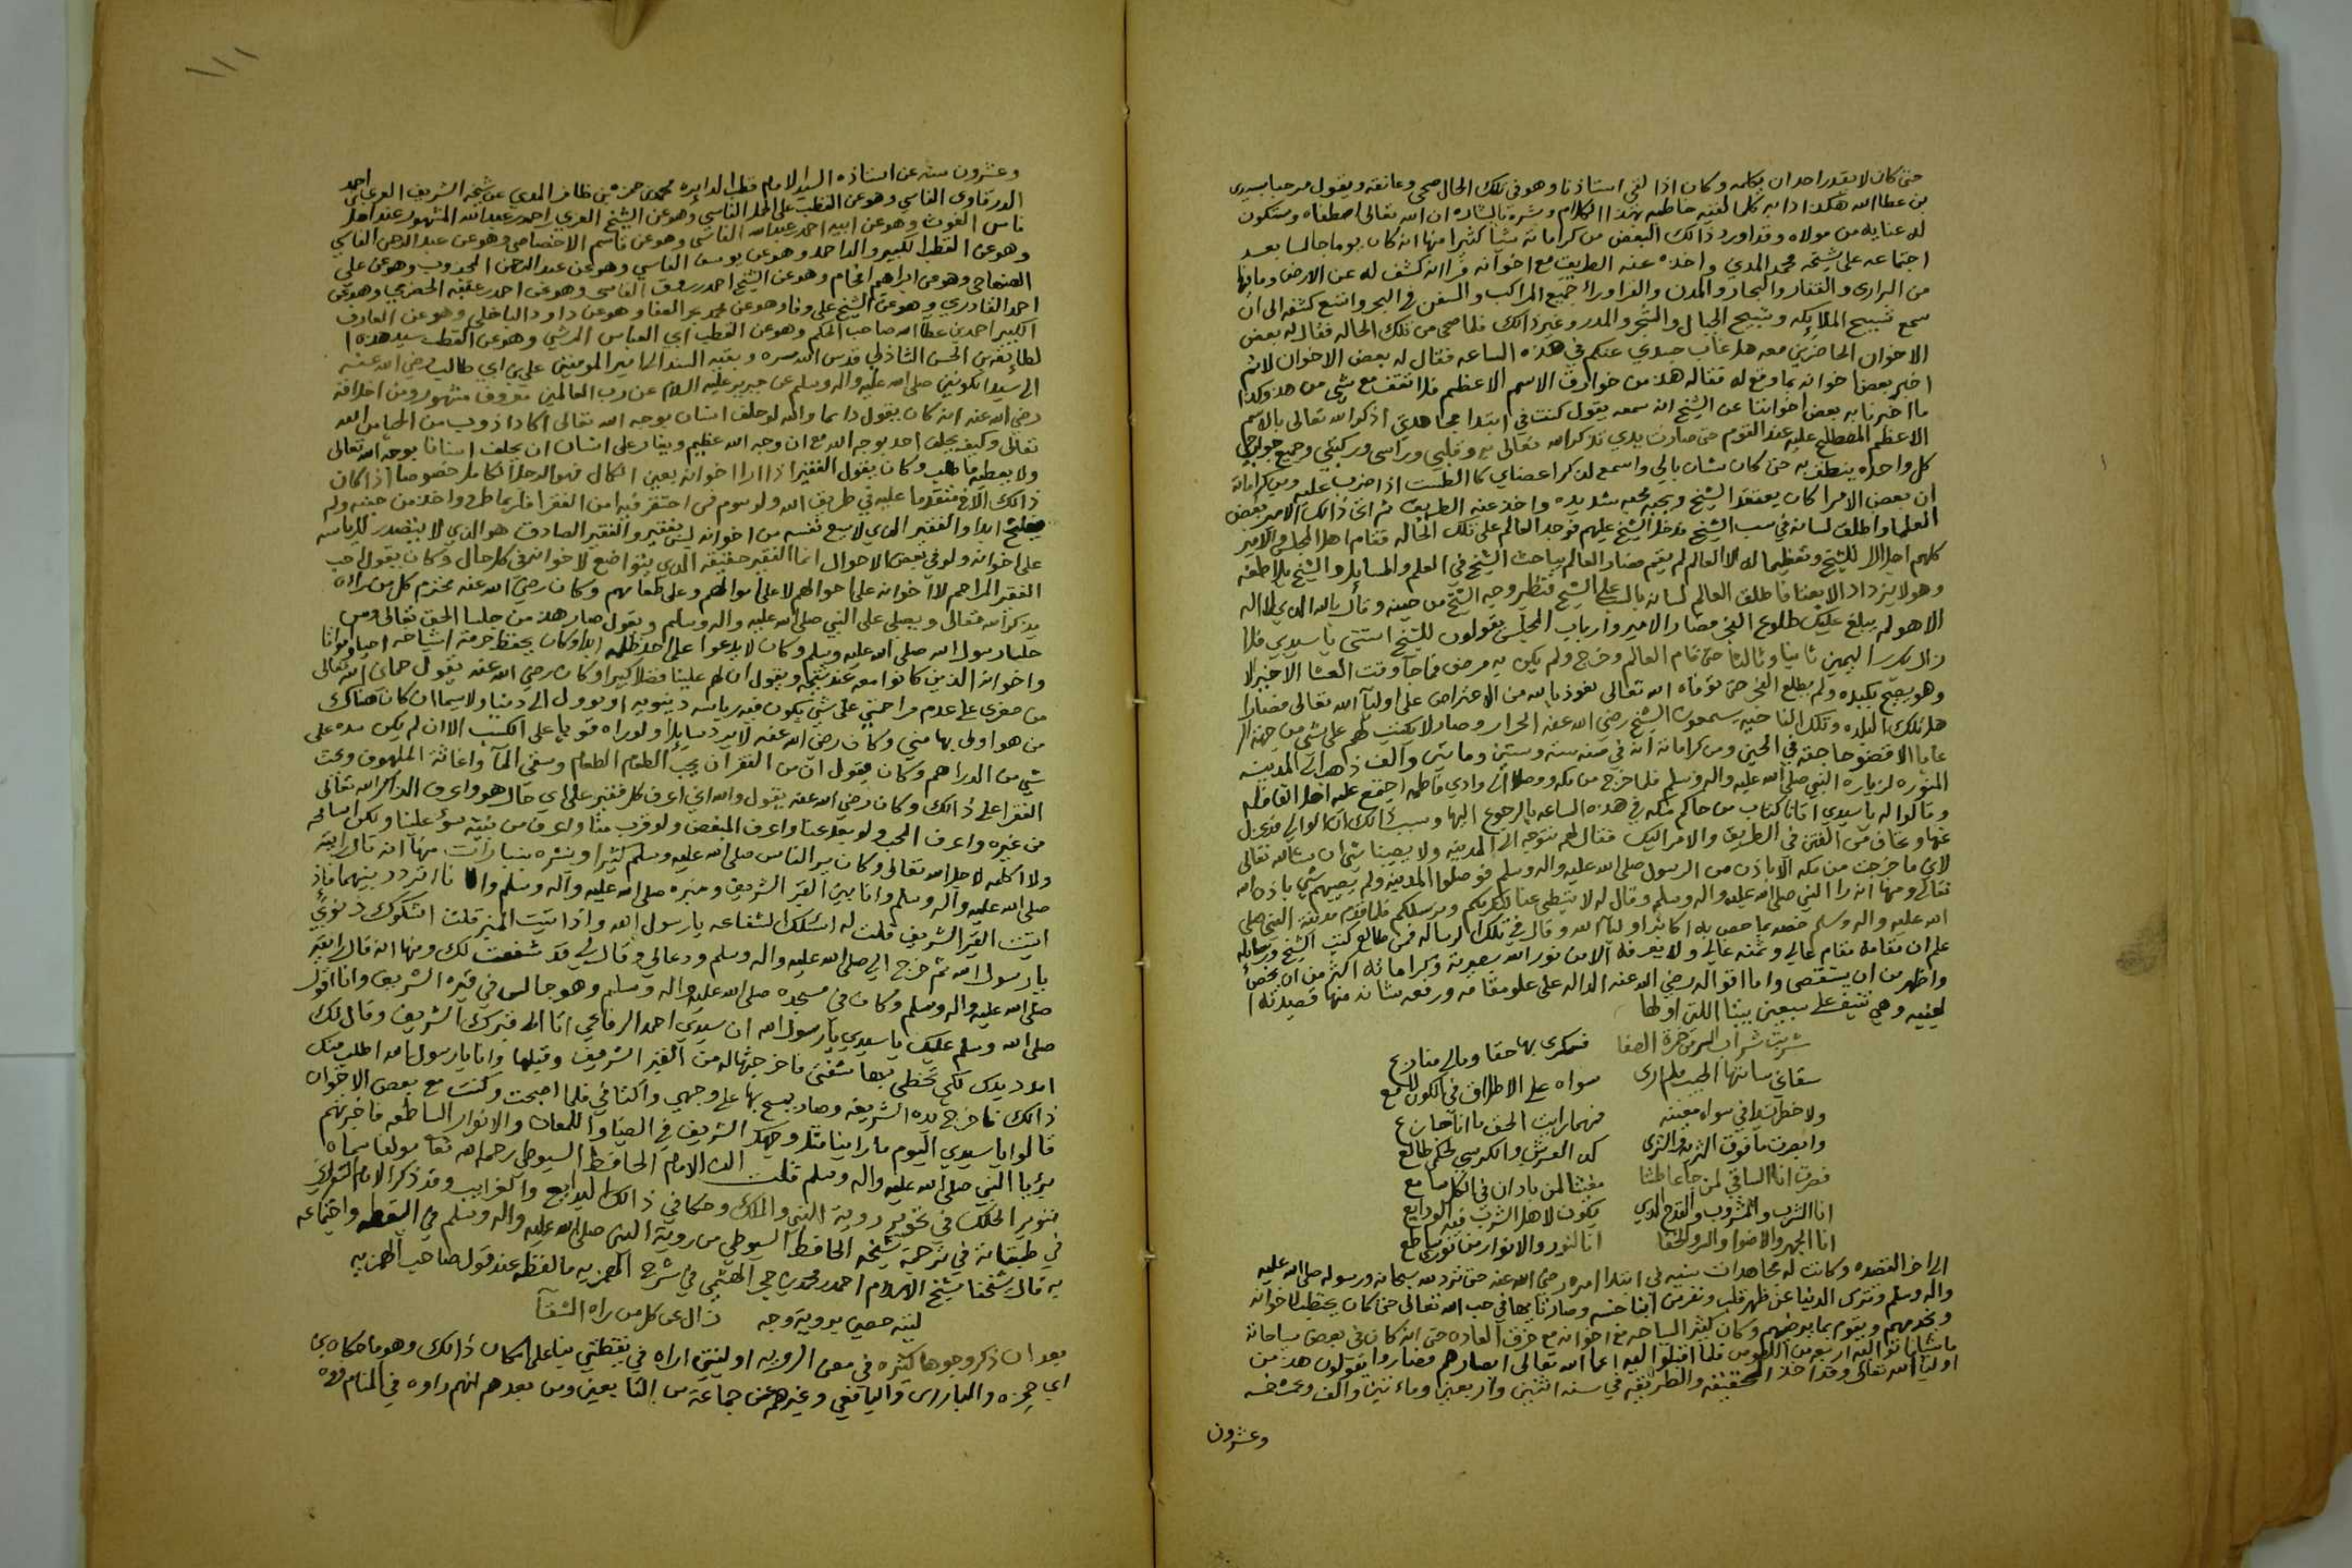 حتى كان لا يقدر احد ان يكلمه وكان اذا لقي استاذنا وهو في تلك الحال صحى وعانقه ويقول مرحبا بسيدى
بن عطا الله هكذا دابه كلما لقيه خاطبه بهذا الكلام وبشره بالشاره ان الله تعالى اصطفاه وستكون
له عنايه من مولاه وقد اورد ذالك البعض من كراماته شيأ كثيرا منها انه كان يوما جالسا بعد
اجتماعه على شيخه محمد المدني واخذه عنه الطريق مع اخوانه فرا انه كشف له عن الارض وما فيها
من البرارى والقفار والبحار والمدن والقرا وراى جميع المراكب والسفن في البحر واتسع كشفه الى ان
سمع تسبيح الملايكه وتسبيح الجبال والشجر والمدر وغير ذالك فلما صحى من تلك الحاله فقال له بعض
الاخوان الحاضرين معه هل غاب جسدي عنكم في هذه الساعه فقال له بعض الاخوان لا ثم
اخبر بعض اخوانه بما وقع له فقال له هذا من خوارق الاسم الاعظم فلا تقف مع شي من هذا وكذا
ما اخبرنا به بعض اخواننا عن الشيخ انه سمعه يقول كنت في ابتدا مجاهدتي اذكر الله تعالى بالاسم
الاعظم المصطلح عليه عند القوم حتى صارت يدي تذكر الله تعالى وقلبي وراسى وركبتي وجميع جوارحي
كل واحد ينطق به حتى كان بشان بالي واسمع لذكر اعضاي كما الطست اذا ضرب عليه ومن كراماته
ان بعض الامرا كان يعتقد الشيخ ويحبه محبه شديده واخذ عنه الطريق ثم اتى ذالك الامير بعض
العلما واطلق لسانه في سب الشيخ فدخل الشيخ عليهم فوجد العالم على تلك الحاله فقام اهل المجلس والامير
كلهم اجلالا للشيخ وتعظيما له الا العالم لم يقم فصار العالم يباحث الشيخ في العلم والمسايل والشيخ يلاطفه
وهو لا يزداد الا بغضا فاطلق العالم لسانه بالسب على الشيخ فتغير وجه الشيخ من حينه وقال بالله الذي لا اله
الا هو لم يبلغ عليك طلوع الفجر فصار الامير وارباب المجلس يقولون للشيخ استثني يا سيدي فلا
زال يكرر اليمين ثانيا وثالثا حتى قام العالم وخرج ولم يكن به مرض فما جا وقت العشا الاخير الا
وهو يصيح بكبده ولم يطلع الفجر حتى توفاه الله تعالى نعوذ بالله من الاعتراض على اوليآ الله تعالى فصار
اهل تلك البلده وتلك الناحيه يسمعون الشيخ رضي الله عنه الجرار وصار لا يكتب لهم على شي من جهة الـ
عاما الا قضوا حاجته في الحين ومن كراماته انه في سنة ستة وستين ومايتين والف ذاهب الى المدينه
المنوره لزياره النبي صلى الله عليه واله وسلم فلما خرج من مكه ووصل الى وادي فاطمه اجتمع عليه اهل القافله
وقالوا له يا سيدي اتانا كتاب من حاكم مكه في هذه الساعه بالرجوع اليها وسبب ذالك ان الوالي قد عزل
عنها ونخاف من الفتن في الطريق والامر اليك فقال لهم نتوجه الى المدينه ولا يصيبنا شي ان شا الله تعالى
لاني ما خرجت من مكه الا باذن من الرسول صلى الله عليه واله وسلم فوصلوا المدينه ولم يصيبهم شي باذن الله
تعالى ومنها انه راا النبي صلى الله عليه واله وسلم وقال له لا تبطي عنا
الله عليه واله وسلم خصه بما خص به اكابر اوليآ الله وقال في تلك الرساله فمن طالع كتب الشيخ ورسايله
علم ان مقامه مقام عالي وثمنه غالي ولا يعرفه الا من نور الله بصيرته وكراماته اكثر من ان تحصى
واظهر من ان يستقصى واما اقواله رضي الله عنه الداله على علو مقامه ورفعه شانه منها قصيدته ا
لعينيه وهي تنيف على سبعين بيتا اللتي اولها
شربت شراب السر من خمرة الصفا فسكرى بها حقا ومالي منازع
سقاني ساقيها الحبيب فلم ارى سواه على الاطلاق في الكون لامع
ولا خطرت لي في سواه معينه فمهما رايت الحق ما انا خازع
وابصرت ما فوق الثريا والثرى كذا العرش والكرسي لحكمي طالع
فصرت انا الساقي لمن جا عاطشا مغيثا لمن نادان في الكل سامع
انا الشرب والمشروب والقدح الذي يكون لاهل الشرب فيه الودايع
انا الجهر والاضوا والسر والخفا انا النور والانوار من نوري ساطع
الى اخر القصيده وكانت له مجاهدات سنيه في ابتدا امره رضي الله عنه حتى تزود لله سبحانه ورسوله صلى الله عليه
واله وسلم وترك الدنيا عن ظهر قلب ونفر من ابنا جنسه وصار تايها في حب الله تعالى حتى كان يحتطب لاخوانه
ويخدمهم ويقوم بما يرضيهم وكان كثير السياحه مع اخوانه مع خرق العاده حتى انه كان في بعض سياحاته
ماشيا اتوا اليه اربعه من اللصوص فلما اقبلوا اليه اعما الله تعالى ابصارهم فصاروا يقولون هذا من
اوليا الله تعالى وقد اخذ الحقيقه والطريقه في سنه اثنين واربعين ومائتين والف وعمره خمسه
وعشرون
١١١
وعشرون سنه عن استاذه السيد الامام قطب الدايره محمد بن حمزه بن ظافر المدني عن شيخه الشريف العربي ابن احمد
الدرقاوى الفاسي وهو عن القطب على الجمل الفاسي وهو عن الشيخ العربي احمد بن عبد الله المشهور عند اهل
فاس الغوث وهو عن ابيه احمد عبد الله الفاسى وهو عن قاسم الاخصاصى وهو عن عبد الرحمن الفاسي
وهو عن القطب الكبير والد احمد وهو عن يوسف الفاسي وهو عن عبد الرحمن المجذوب وهو عن علي
الصنهاجى وهو عن ابراهيم افحام وهو عن الشيخ احمد زروق الفاسى وهو عن احمد بن عقبه الحضرمي وهو عن
احمد القادري وهو عن الشيخ على وفا وهو عن محمد بحر الصفا وهو عن داود الباخلي وهو عن العارف
الكبير احمد بن عطآ الله صاحب الحكم وهو عن القطب ابي العباس المرسي وهو عن القطب سيد هذه ا
لطايفه ابي الحسن الشاذلي قدس الله سره وبقية السند الى امير المومنين علي بن ابي طالب رضي الله عنه
الى سيد الكونين صلى الله عليه واله وسلم عن جبريل عليه السلام عن رب العالمين معروف مشهور ومن اخلاقه
رضي الله عنه انه كان يقول دايما والله لو حلف انسان بوجه الله تعالى اكاد اذوب من الحيا من الله
تعالى وكيف يحلف احد بوجه الله مع ان وجه الله عظيم ويغار على انسان ان يحلف انسانا بوجه الله تعالى
ولا يعطيه ما طلب وكان يقول الفقير اذا راا اخوانه بعين الكمال فهو الرجل الكامل خصوصا اذا كان
ذالك الاخ متقدما عليه في طريق الله ولو بيوم فمن احتقر فقيرا من الفقرا فانما طرح واخذ من جنبه ولم
يفلح ابدا والفقير الذي لا يبيع نفسه من اخوانه ليس بفقير والفقير الصادق هو الذي لا يتصدر للرياسه
على اخوانه ولو في بعض الاحوال انما الفقير حقيقه الذي يتواضع لاخوانه في كل حال وكان يقول احب
الفقير المزاحم لاخوانه على احوالهم لا على اموالهم وعلى طعامهم وكان رضي الله عنه يحترم كل من يراه
يذكر الله تعالى ويصلى على النبي صلى الله عليه واله وسلم ويقول صار هذا من جلسا الحق تعالى ومن
جلسا رسول الله صلى الله عليه وسلم وكان لا يدعوا على احد ظلمه ابدا وكان يحفظ حرمة اشياخه احيا وامواتا
واخوانه الذين كانوا معه عند شيخه ويقول ان لهم علينا فضلا كبيرا وكان رضي الله عنه يقول حماني الله تعالى
من صغرى على عدم مزاحمتي على شي يكون فيه رياسه دينويه او يوول الى دنيا ولا سيما ان كان هناك
من هو اولى بها مني وكان رضي الله عنه لا يرد سايلا ولو راه قويا على الكسب الا ان لم يكن بيده على
شي من الدراهم وكان يقول ان من الفقر ان يحب الطعام الطعام وسقي المآ واغاثة الملهوف ويحث
الفقرا على ذالك وكان رضي الله عنه يقول والله اني اعرف كل فقير على اي حال هو واعرف الذاكر الله تعالى
من غيره واعرف المحب ولو بعد عنا واعرف المبغض ولو قرب منا واعرف من نيته سوء علينا ولكن اسامحه
ولا اكلمه لاجل الله تعالى وكان يرا الناس صلى الله عليه وسلم كثيرا ويبشره ببشارات منها انه قال رايته
صلى الله عليه وآله وسلم وانا بين القبر الشريف ومنبره صلى الله عليه وآله وسلم وانا اتردد بينهما فاذ
اتيت القبر الشريف قلت له اسئلك الشفاعه يارسول الله واذا اتيت المنبر قلت اشكوك ذنوبي
يارسول الله ثم خرج الي صلى الله عليه واله وسلم ودعالي وقال لي قد شفعت لك ومنها انه قال رايته
صلى الله عليه واله وسلم وكان في مسجده صلى الله عليه واله وسلم وهو جالس في قبره الشريف وانا اقول
صلى الله وسلم عليك يا سيدي يارسول الله ان سيدي احمد الرفاعي اتا الى قبرك الشريف وقال لك
امدد يدك لكي تحظى بها شفتي فاخرجتها له من القبر الشريف وقبلها وانا يارسول الله اطلب منك
ذالك فاخرج يده الشريفه وصار يمسح بها على وجهي واكتافي فلما اصبحت وكنت مع بعض الاخوان
قالوا يا سيدي اليوم ما راينا مثل وجهك الشريف في الضيا واللمعان والانوار الساطعه فاخبرتهم
برؤيا النبي صلى الله عليه واله وسلم قلت الف الامام الحافظ السيوطي رحمه الله تعا مولفا سماه
تنوير الحلك في تجويز روية النبي والملك وحكا في ذالك البدايع والغرايب وقد ذكر الامام الشعراني
في طبقاته في ترجمة شيخه الحافظ السيوطي من روية النبى صلى الله عليه واله وسلم في اليقظه واجتماعه
به قال شيخنا شيخ الاسلام احمد بن محمد بن حجر الهيثمي في شرح الهمزيه ما لفظه عند قول صاحب الهمزيه
ليته خصني بروية وجه زال عن كل من راه الشقآ
بعد ان ذكر وجوها كثيره في معنى الرويه او ليتني اراه في يقظتي بنا على امكان ذالك وهو ما حكاه بن
ابي جمره والبارزى واليافعي وغيرهم عن جماعة من التابعين ومن بعدهم انهم راوه في المنام وراوه